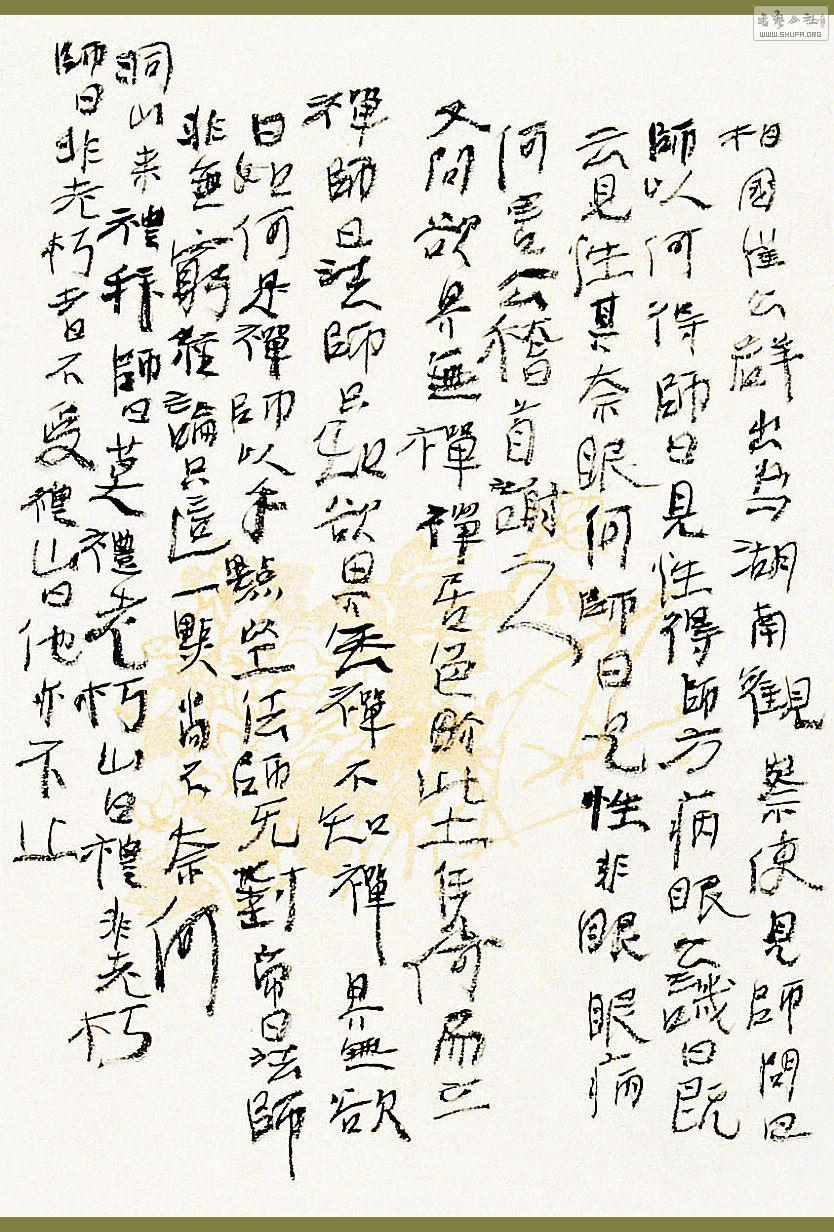 相國崔公群出為湖南觀察使見師問曰
師以何得師曰見性得師方病眼公譏曰既
云見性其奈眼何師曰見性非眼眼病
何害公稽首謝之
又問欲界無禪禪居色界此土憑何而立
禪師曰法師只知欲界無禪不知禪界無欲
曰如何是禪師以手點空法師无對帝曰法師
講無窮經論只這一點尚不奈何
洞山来禮拜師曰莫禮老朽山曰禮非老朽
師曰非老朽者不受禮山曰他亦不止
書藝公社
WWW.SHUFA.ORG